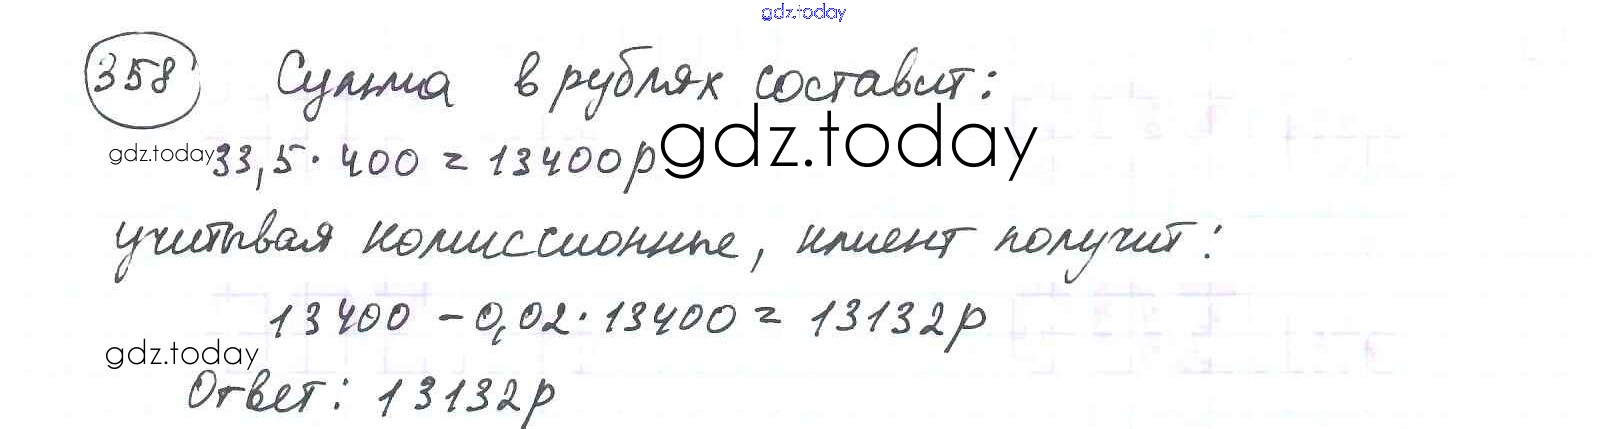 gdz.today
358 Сумма в рублях составит:
gdz.today 33,5 · 400 = 13400р gdz.today
учитывая комиссионные, клиент получит:
13400 - 0,02 · 13400 = 13132р
gdz.today
Ответ: 13132р